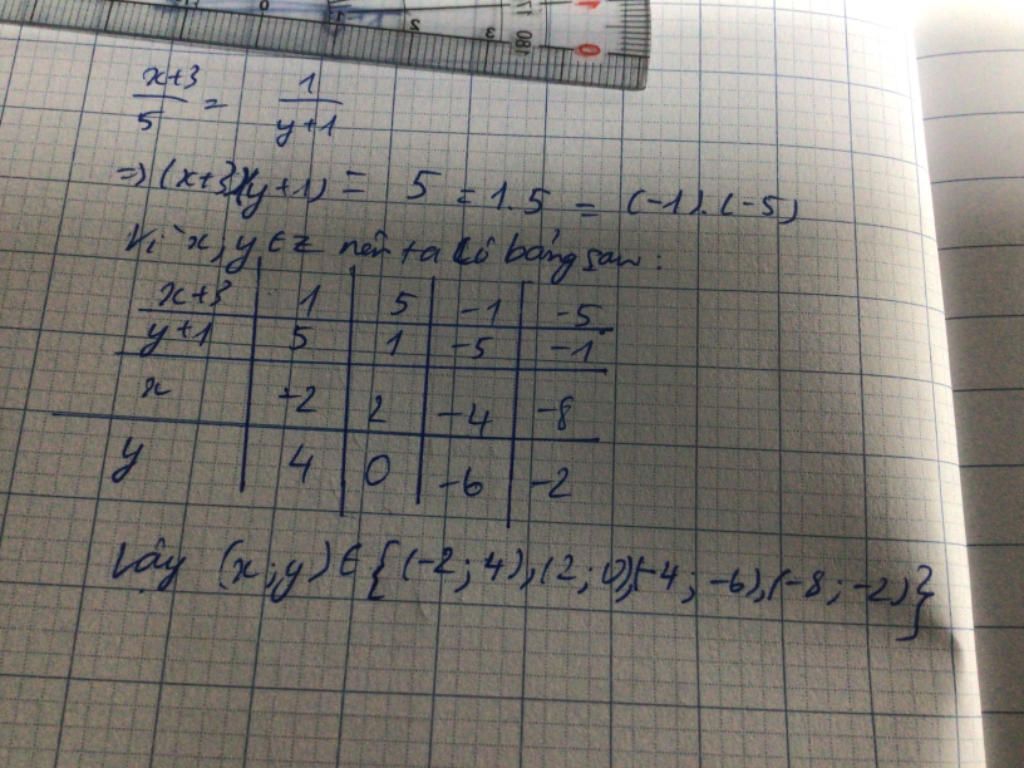 0 1 2 3 180 0
x+3/5 = 1/y+1
=> (x+3)(y+1) = 5 = 1.5 = (-1).(-5)
Vì x, y ∈ Z nên ta có bảng sau:
x+3 | 1 | 5 | -1 | -5
y+1 | 5 | 1 | -5 | -1
x | -2 | 2 | -4 | -8
y | 4 | 0 | -6 | -2
Vậy (x;y) ∈ {(-2;4),(2;0),(-4;-6),(-8;-2)}